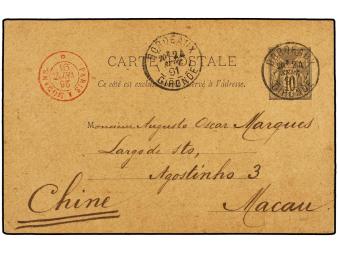 CARTE POSTALE
Ce côté est exclusivement réservé à l'adresse.
BORDEAUX
91
GIRONDE
BORDEAUX
GIRONDE
10
PARIS
Monsieur Augusto Oscar Marques
Largo de Sto,
Agostinho 3
Chine
Macau